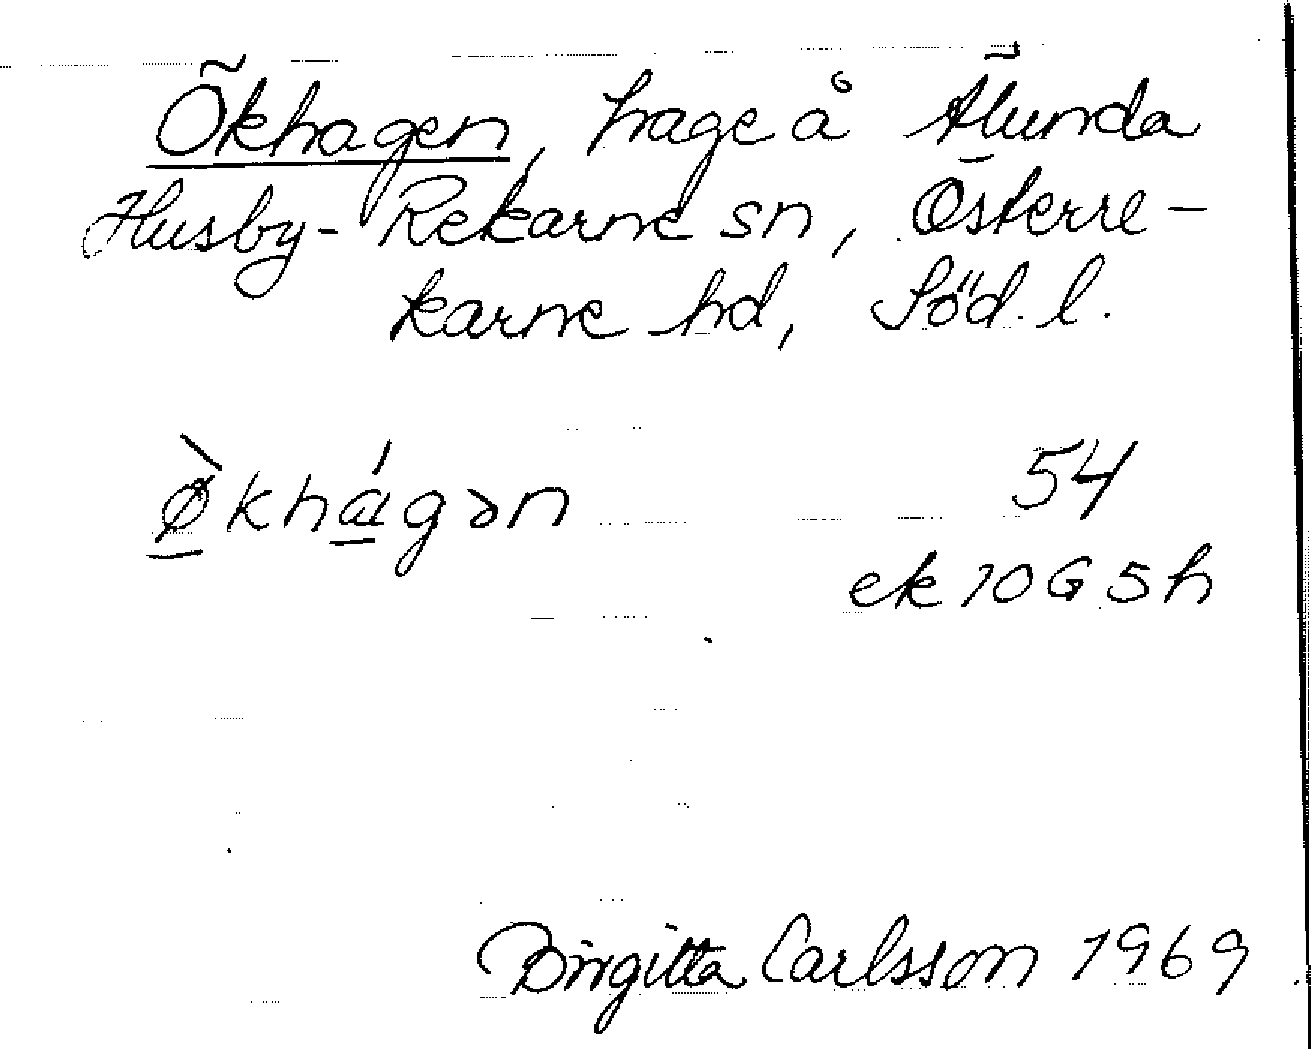 Ökhagen, hage å Älunda
Husby-Rekarne sn, Österre-
karne hd, Söd. l.
ø̀khágən 54
ek 10G 5h
Birgitta Carlsson 1969